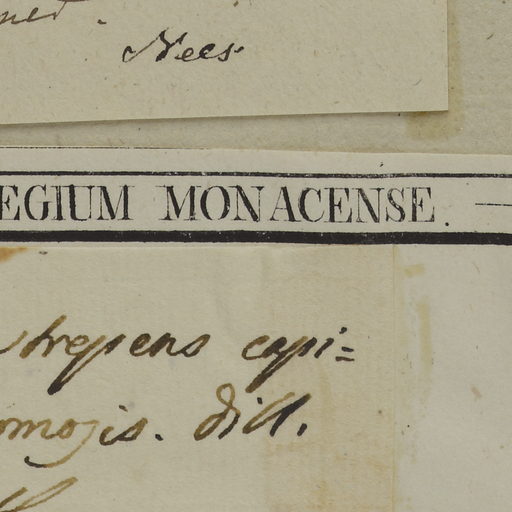 Nees
EGIUM MONACENSE.
repens capi=
omosis. dill.